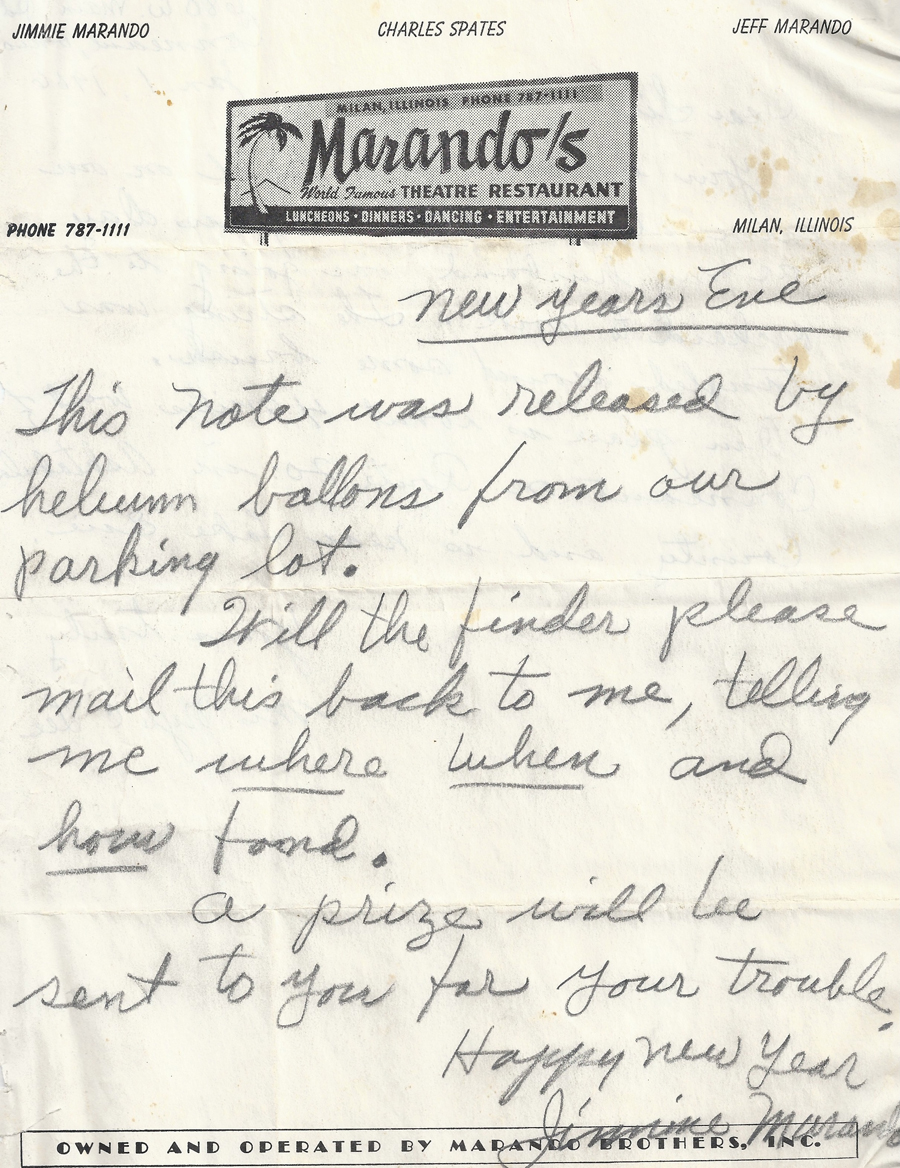 JIMMIE MARANDO CHARLES SPATES JEFF MARANDO
MILAN, ILLINOIS PHONE 787-1111
Marando's
World Famous THEATRE RESTAURANT
LUNCHEONS · DINNERS · DANCING · ENTERTAINMENT
PHONE 787-1111 MILAN, ILLINOIS
New Years Eve
This note was released by
helium ballons from our
parking lot.
Will the finder please
mail this back to me, telling
me where when and
how fond.
A prize will be
sent to you for your trouble.
Happy New Year
Jimmie Marando
OWNED AND OPERATED BY MARANDO BROTHERS, INC.